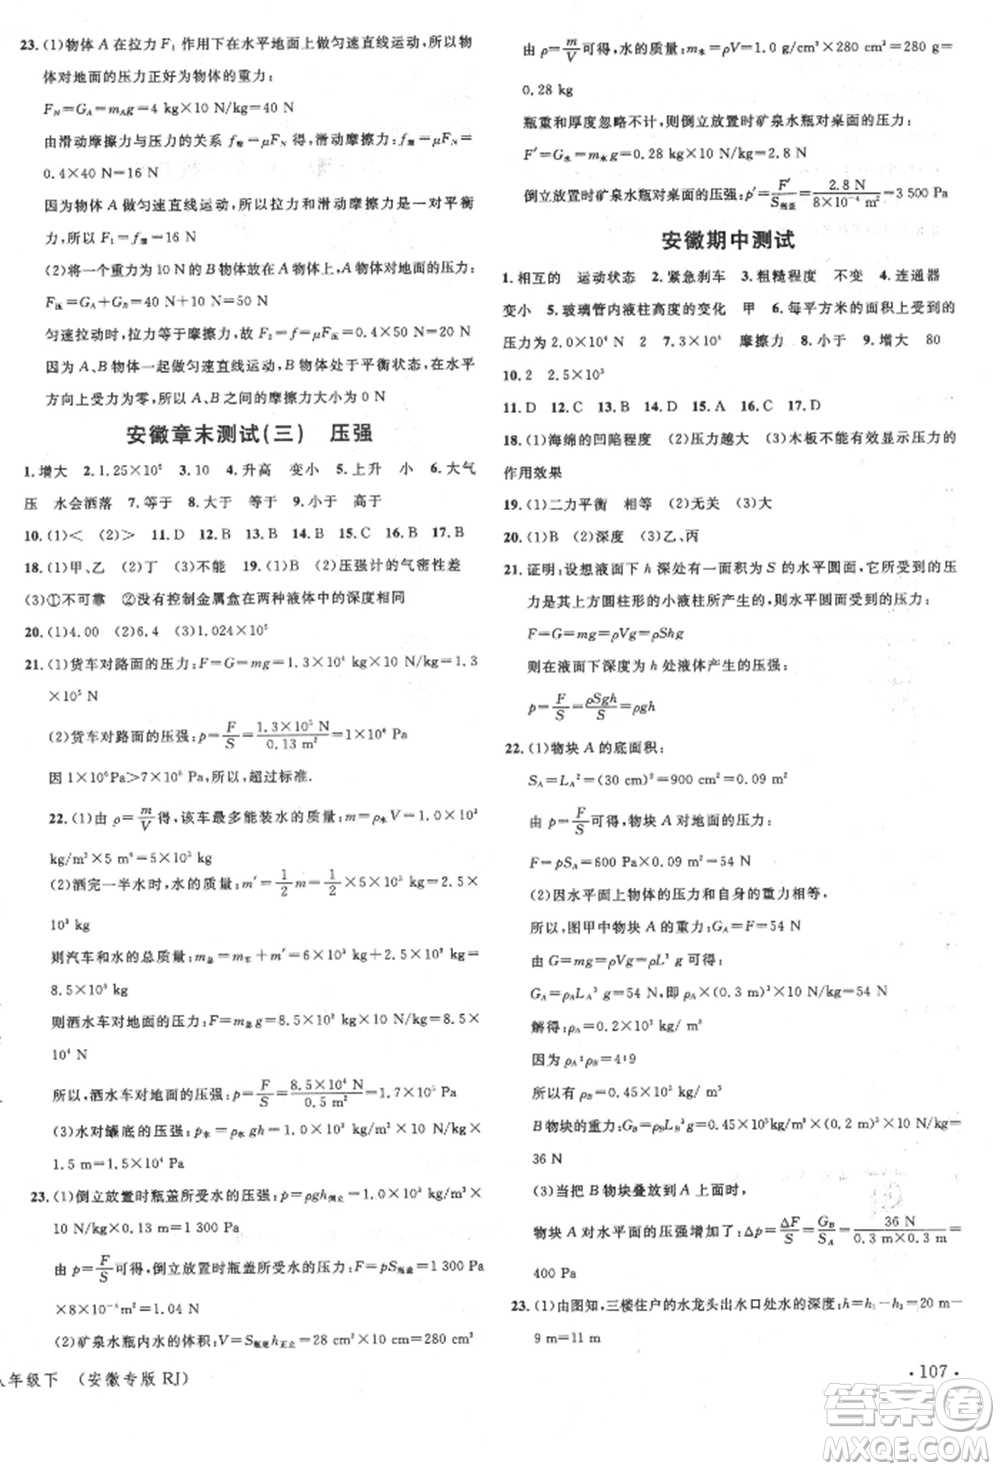 23. (1)物体 A 在拉力 F₁ 作用下在水平地面上做匀速直线运动,所以物
体对地面的压力正好为物体的重力:
F_N=G_A=m_Ag=4 kg×10 N/kg=40 N
由滑动摩擦力与压力的关系 f滑=μF_N 得,滑动摩擦力:f滑=
0.4×40 N=16 N
因为物体 A 做匀速直线运动,所以拉力和滑动摩擦力是一对平衡
力,所以 F₁=f滑=16 N
(2)将一个重力为 10 N 的 B 物体放在 A 上,整体对地面的压力:
F压=G_A+G_B=50 N
匀速拉动时,拉力等于摩擦力,故 F₂=f=μF压=0.4×50 N=20 N
因为 A、B 物体一起做匀速直线运动,B 物体处于平衡状态,在水平
方向上受力平衡,所以 A、B 之间的摩擦力大小为 0 N
安徽章末测试(三) 压强
1. 增大 2. 1.25×10⁵ 3. 10 4. 升高 变小 5. 上升 小 6. 大气
压 水会洒落 7. 等于 8. 大于 等于 9. 小于 大于
10. (1)< (2)> 11. D 12. B 13. B 14. C 15. B 16. B 17. B
18. (1)甲、乙 (2)丁 (3)不能 19. (1)B (2)压强计的气密性差
(3)①不可靠 ②没有控制金属盒在两种液体中的深度相同
20. (1)4.00 (2)6.4 (3)1.024×10⁵
21. (1)货车对路面的压力:F=G=mg=1.3×10⁴ kg×10 N/kg=1.3
×10⁵ N
(2)货车对路面的压强:p=F/S=1.3×10⁵ N/0.13 m²=1×10⁶ Pa
因 1×10⁶Pa>7×10⁵ Pa,所以,超过标准.
22. (1)由 ρ=m/V 可得,该车最多能装水的质量:m=ρ水V=1.0×10³
kg/m³×5 m³=5×10³ kg
(2)洒完一半水时,水的质量:m′=1/2 m=1/2×5×10³ kg=2.5×
10³ kg
则汽车和水的总质量:m总=m车+m′=6×10³ kg+2.5×10³ kg=
8.5×10³ kg
则洒水车对地面的压力:F=m总g=8.5×10³ kg×10 N/kg=8.5×
10⁴ N
所以,洒水车对地面的压强:p=F/S=8.5×10⁴ N/0.5 m²=1.7×10⁵ Pa
(3)水对罐底的压强:p水=ρ水gh=1.0×10³ kg/m³×10 N/kg×
1.5 m=1.5×10⁴ Pa
23. (1)倒立放置时瓶盖所受水的压强:p=ρgh倒立=1.0×10³ kg/m³
×10 N/kg×0.13 m=1 300 Pa
由 p=F/S 可得,倒立放置时瓶盖所受水的压力:F=pS瓶盖=1 300 Pa
×8×10⁻⁴ m²=1.04 N
(2)矿泉水瓶内水的体积:V=S瓶底h正立=28 cm²×10 cm=280 cm³
八年级下 (安徽专版 RJ)
由 ρ=m/V 可得,水的质量:m水=ρV=1.0 g/cm³×280 cm³=280 g=
0.28 kg
瓶重和厚度忽略不计,则倒立放置时矿泉水瓶对桌面的压力:
F′=G水=m水g=0.28 kg×10 N/kg=2.8 N
倒立放置时矿泉水瓶对桌面的压强:p′=F′/S瓶盖=2.8 N/8×10⁻⁴ m²=3 500 Pa
安徽期中测试
1. 相互的 运动状态 2. 紧急刹车 3. 粗糙程度 不变 4. 连通器
变小 5. 玻璃管内液柱高度的变化 甲 6. 每平方米的面积上受到的
压力为 2.0×10⁴ N 2 7. 3×10⁵ 摩擦力 8. 小于 9. 增大 80
10. 2 2.5×10³
11. D 12. D 13. B 14. D 15. A 16. C 17. D
18. (1)海绵的凹陷程度 (2)压力越大 (3)木板不能有效显示压力的
作用效果
19. (1)二力平衡 等于 (2)无关 (3)大
20. (1)B (2)深度 (3)乙、丙
21. 证明:设想液面下 h 深处有一面积为 S 的水平圆面,它所受的压
力是其上方圆柱形的小液柱所产生的,则水平圆面受到的压力:
F=G=mg=ρVg=ρShg
则在液面下深度为 h 处液体产生的压强:
p=F/S=ρSgh/S=ρgh
22. (1)物块 A 的底面积:
S_A=L_A²=(30 cm)²=900 cm²=0.09 m²
由 p=F/S 可得,物块 A 对地面的压力:
F=pS_A=600 Pa×0.09 m²=54 N
(2)因水平面上物体的压力和自身的重力相等,
所以,图甲中物块 A 的重力:G_A=F=54 N
由 G=mg=ρVg=ρL³g 可得:
G_A=ρ_AL_A³g=54 N,即 ρ_A×(0.3 m)³×10 N/kg=54 N
解得:ρ_A=0.2×10³ kg/ m³
因为 ρ_A:ρ_B=4:9
所以 ρ_B=0.45×10³ kg/ m³
B 物块的重力:G_B=ρ_BL_B³g=0.45×10³ kg/m³×(0.2 m)³×10 N/kg=
36 N
(3)当把 B 物块叠放到 A 上面时,
物块 A 对水平面的压强增加了:Δp=ΔF/S=G_B/S_A=36 N/0.3 m×0.3 m=
400 Pa
23. (1)由图知,三楼住户的水龙头出水口处水的深度:h=h₁-h₂=20 m-
9 m=11 m
· 107 ·
答案圈
MXQE.COM